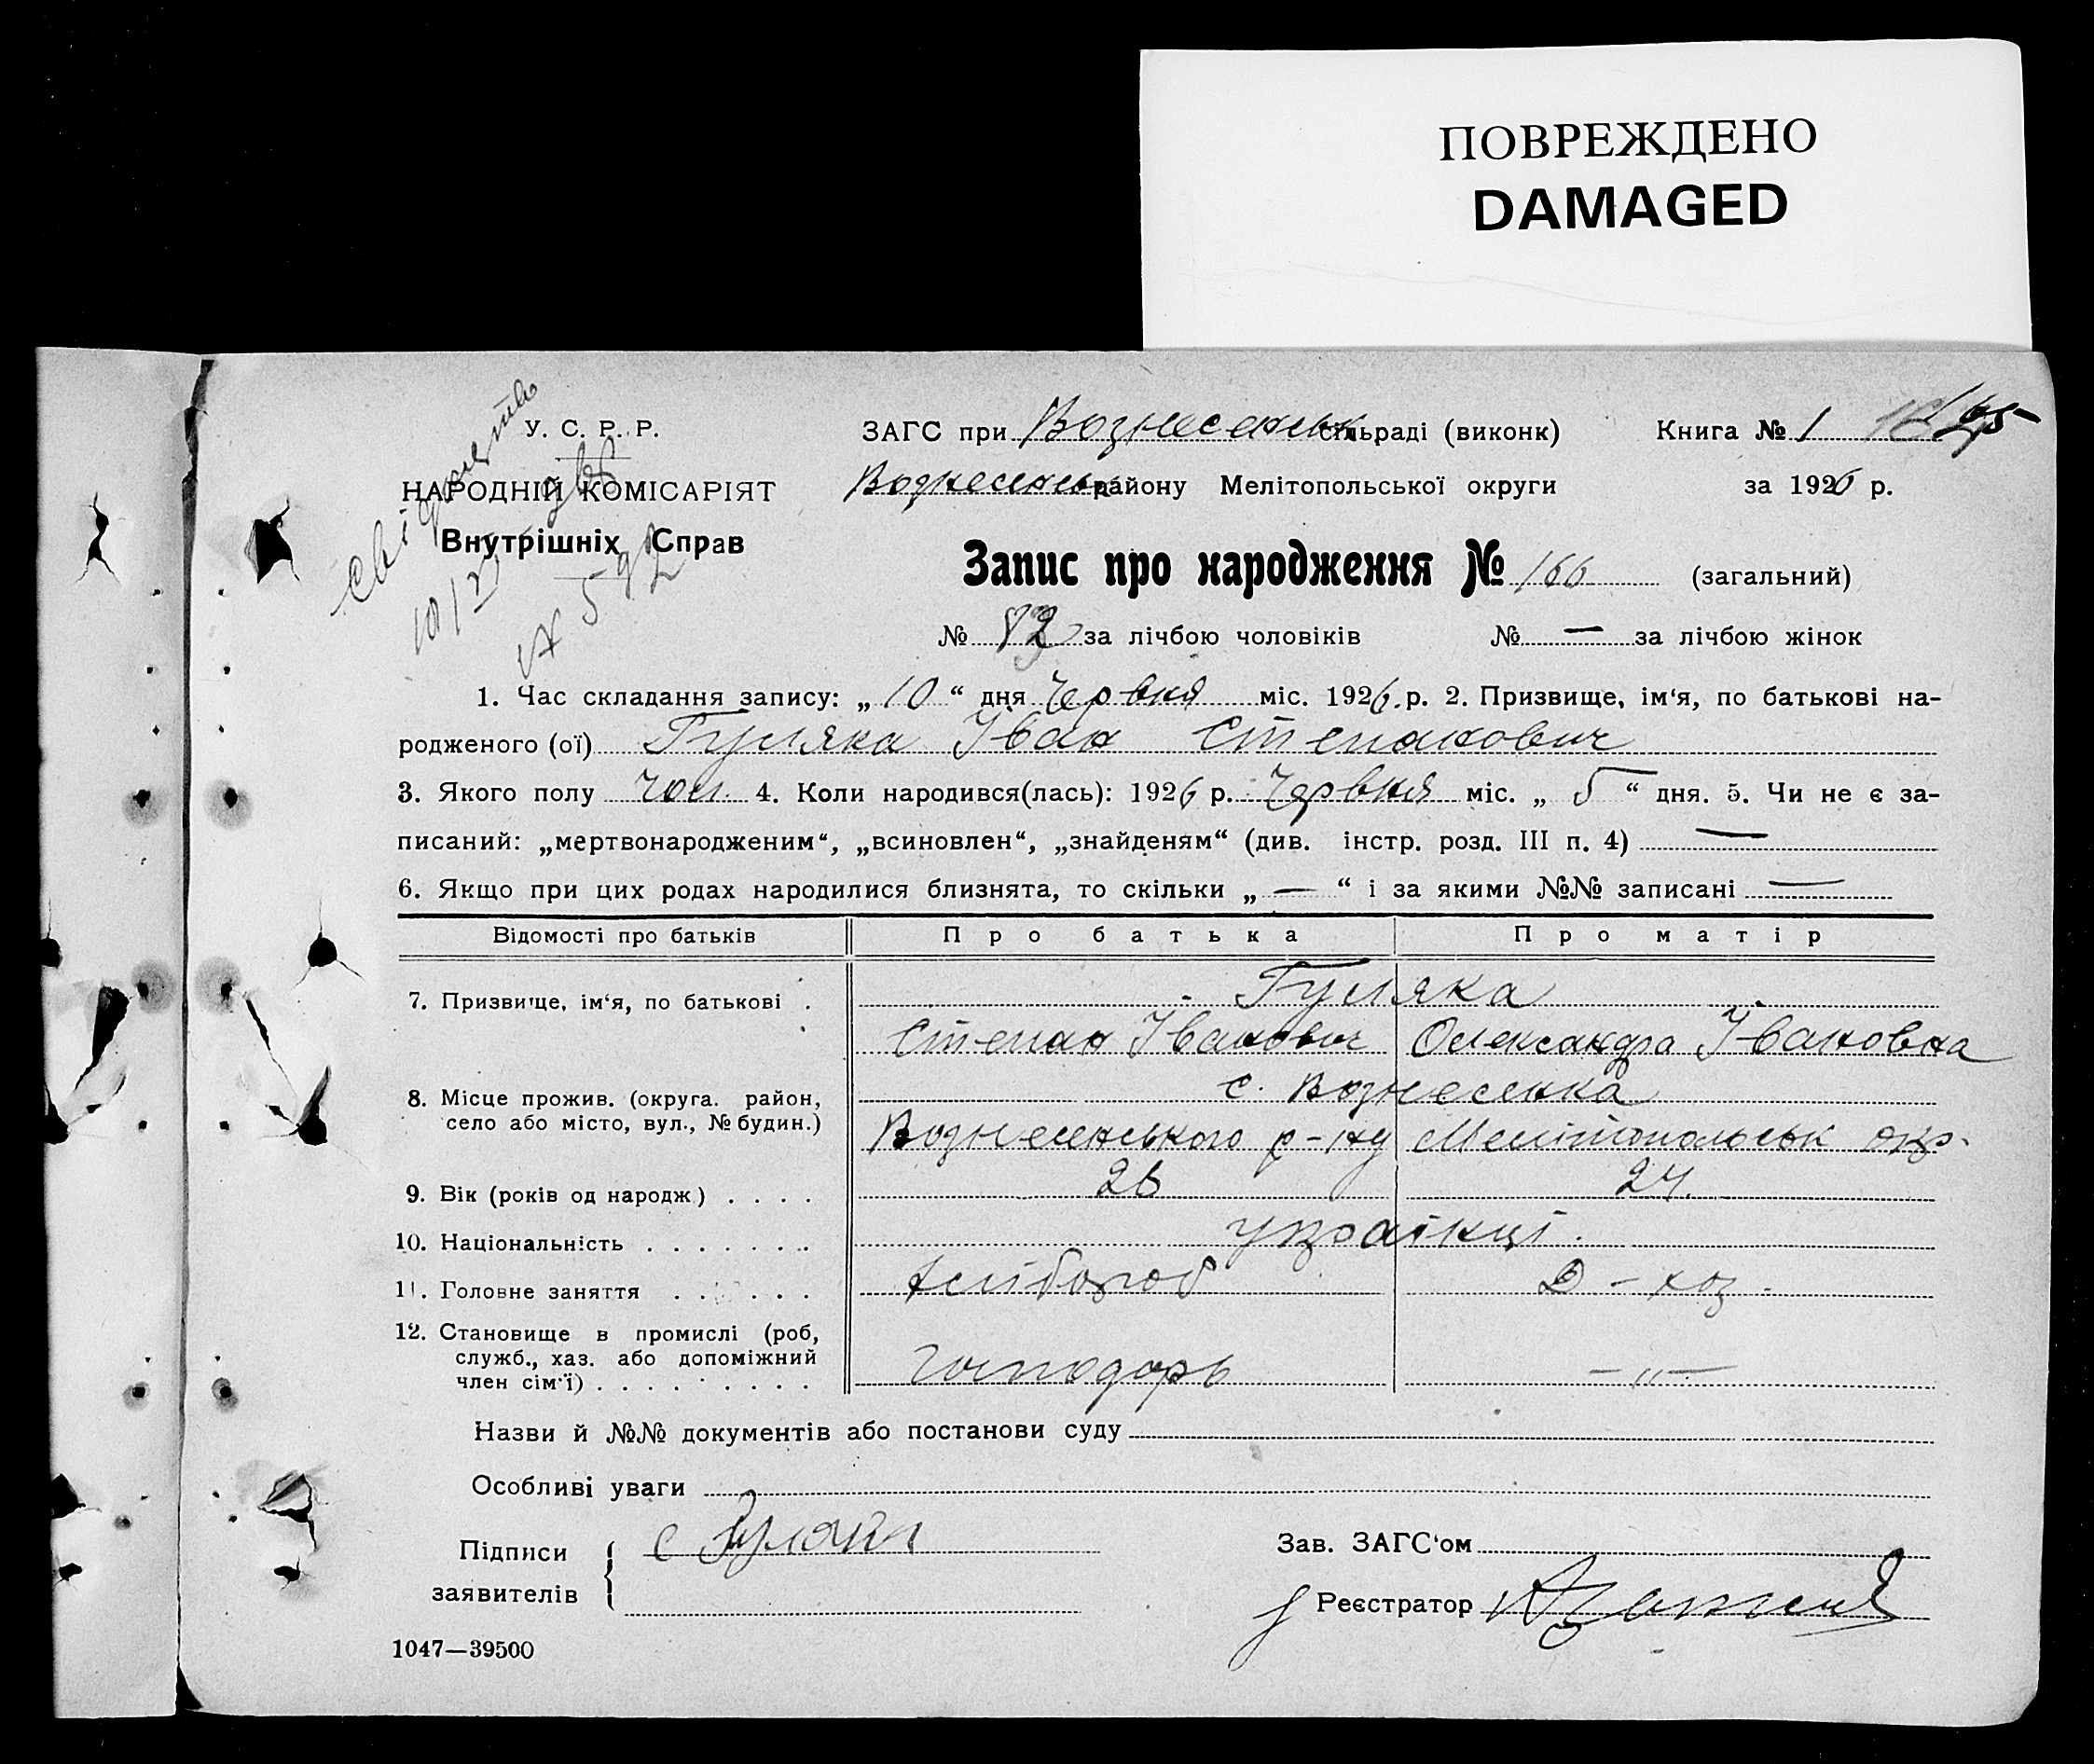 ПОВРЕЖДЕНО
DAMAGED
У. С. Р. Р.
НАРОДНІЙ КОМІСАРІЯТ
Внутрішніх Справ
ЗАГС при Вознесенськ сільраді (виконк) Книга № 1
Вознесенськ району Мелітопольської округи за 1926 р.
Запис про народження № 166 (загальний)
№ 82 за лічбою чоловіків № — за лічбою жінок
1. Час складання запису: „ 10 “ дня Червня міс. 1926 р. 2. Призвище, ім‘я, по батькові на-
родженого (ої) Гуляка Іван Степанович
3. Якого полу чол. 4. Коли народився(лась): 1926 р. Червня міс. „ 5 “ дня. 5. Чи не є за-
писаний: „мертвонародженим“, „всиновлен“, „знайденям“ (див. інстр. розд. III п. 4) —
6. Якщо при цих родах народилися близнята, то скільки „ — “ і за якими №№ записані —
Відомості про батьків Про батька Про матір
7. Призвище, ім‘я, по батькові . Гуляка
Степан Іванович Олександра Івановна
8. Місце прожив. (округа. район, с. Вознесенка
село або місто, вул., № будин.) Вознесенського р-ну Мелітопольськ окр.
9. Вік (років од народж) . . . . 26 24.
10. Національність . . . . . . . українці.
11. Головне заняття . . . . . . хлібороб Д – хоз.
12. Становище в промислі (роб,
служб., хаз. або допоміжний
член сім‘ї) . . . . . . . . . господарь – „ –
Назви й №№ документів або постанови суду
Особливі уваги
Підписи
заявителів
С Гуляка
Зав. ЗАГС‘ом
Реєстратор
1047—39500